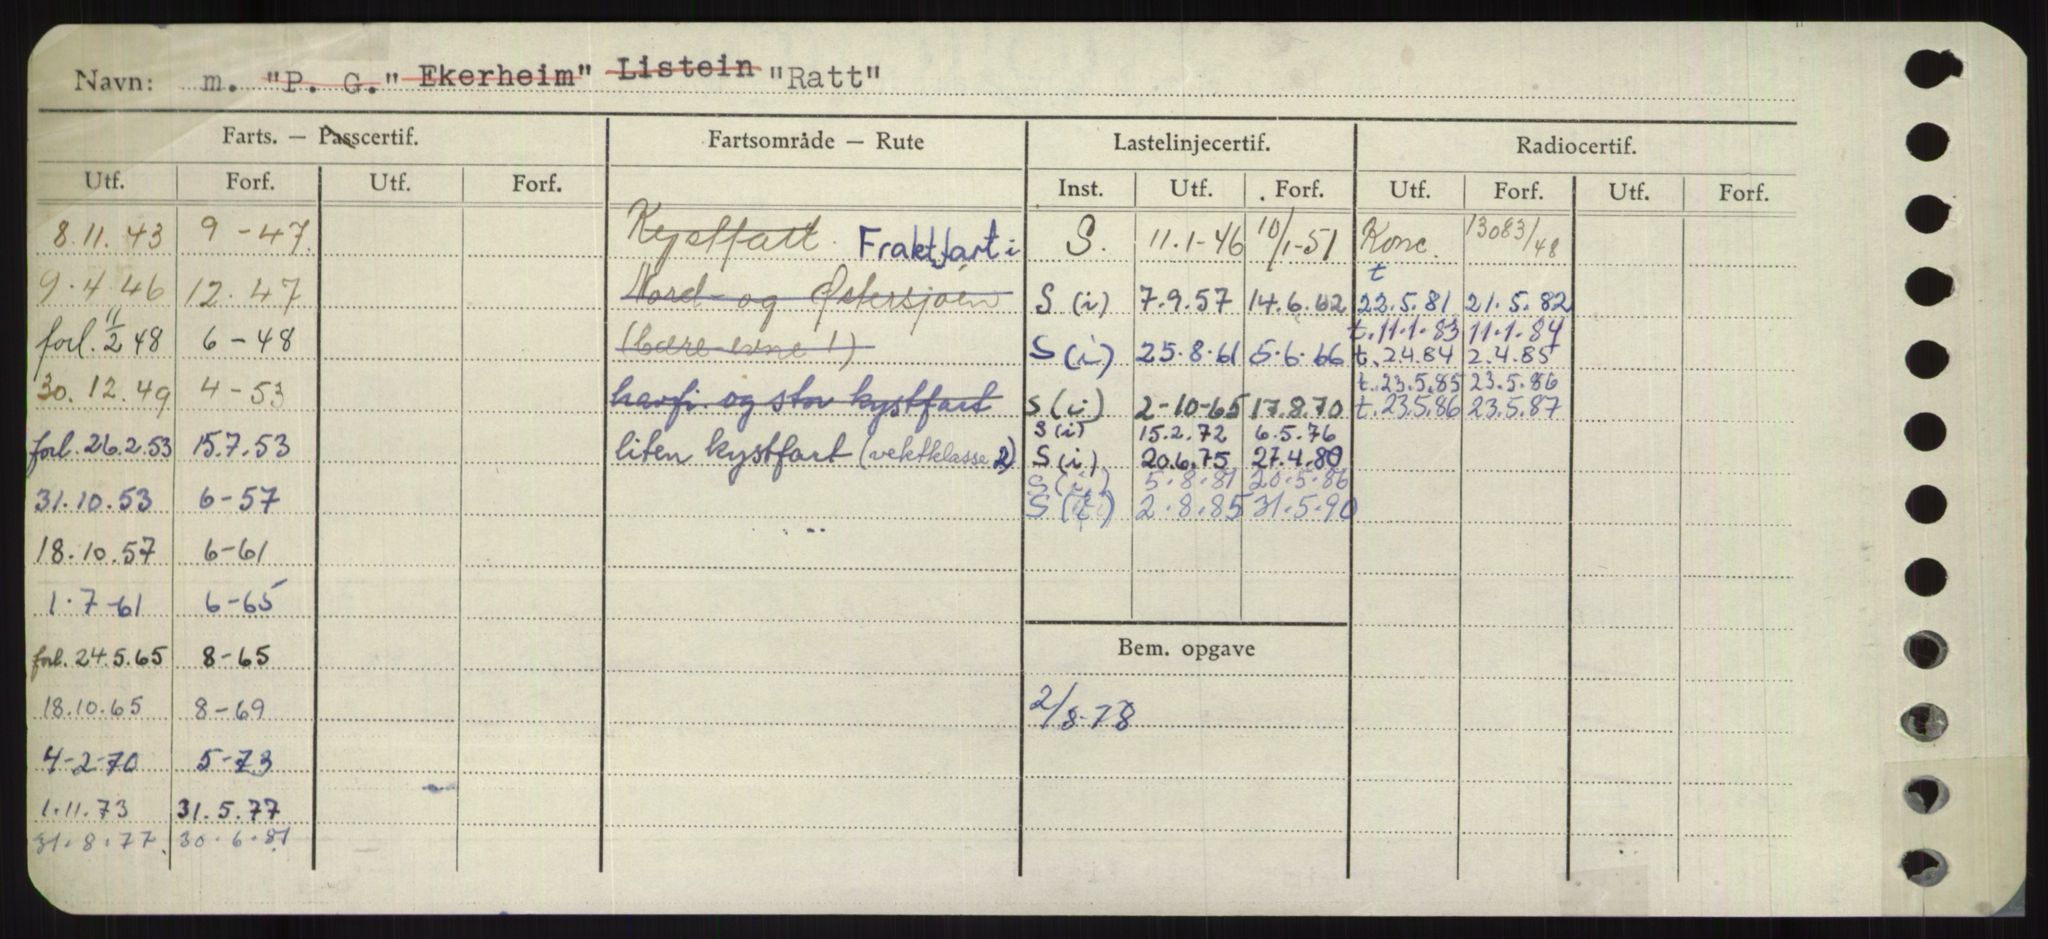 Navn: m. "P. G." Ekerheim" Listein "Ratt"
Farts. — Passcertif. Fartsområde — Rute Lastelinjecertif. Radiocertif.
Utf. Forf. Utf. Forf. Inst. Utf. Forf. Utf. Forf. Utf. Forf.
8.11.43 9-47. Kystfart. Fraktfart i S. 11.1-46 10/1-51 Konc. 13083/48
9.4.46 12.47 Nord- og Østersjøen S (i) 7.9.57 14.6.62 t 22.5.81 21.5.82
t. 11.1.83 11.1.84
forl. 11/2 48 6-48 (bære-evne 1) S (i) 25.8.61 5.6.66 t. 2.4.84 2.4.85
t. 23.5.85 23.5.86
30.12.49 4-53 havfi. og stor kystfart S (i) 2-10-65 17.8.70 t. 23.5.86 23.5.87
S (i) 15.2.72 6.5.76
forl. 26.2.53 15.7.53 liten kystfart (vektklasse 2) S (i) 20.6.75 27.4.80
S (i) 5.8.81 20.5.86
31.10.53 6-57 S (i) 2.8.85 31.5.90
18.10.57 6-61
1.7-61 6-65
forl. 24.5.65 8-65 Bem. opgave
18.10.65 8-69 2/8-78
4-2-70 5-73
1.11.73 31.5.77
31.8.77. 30.6.81